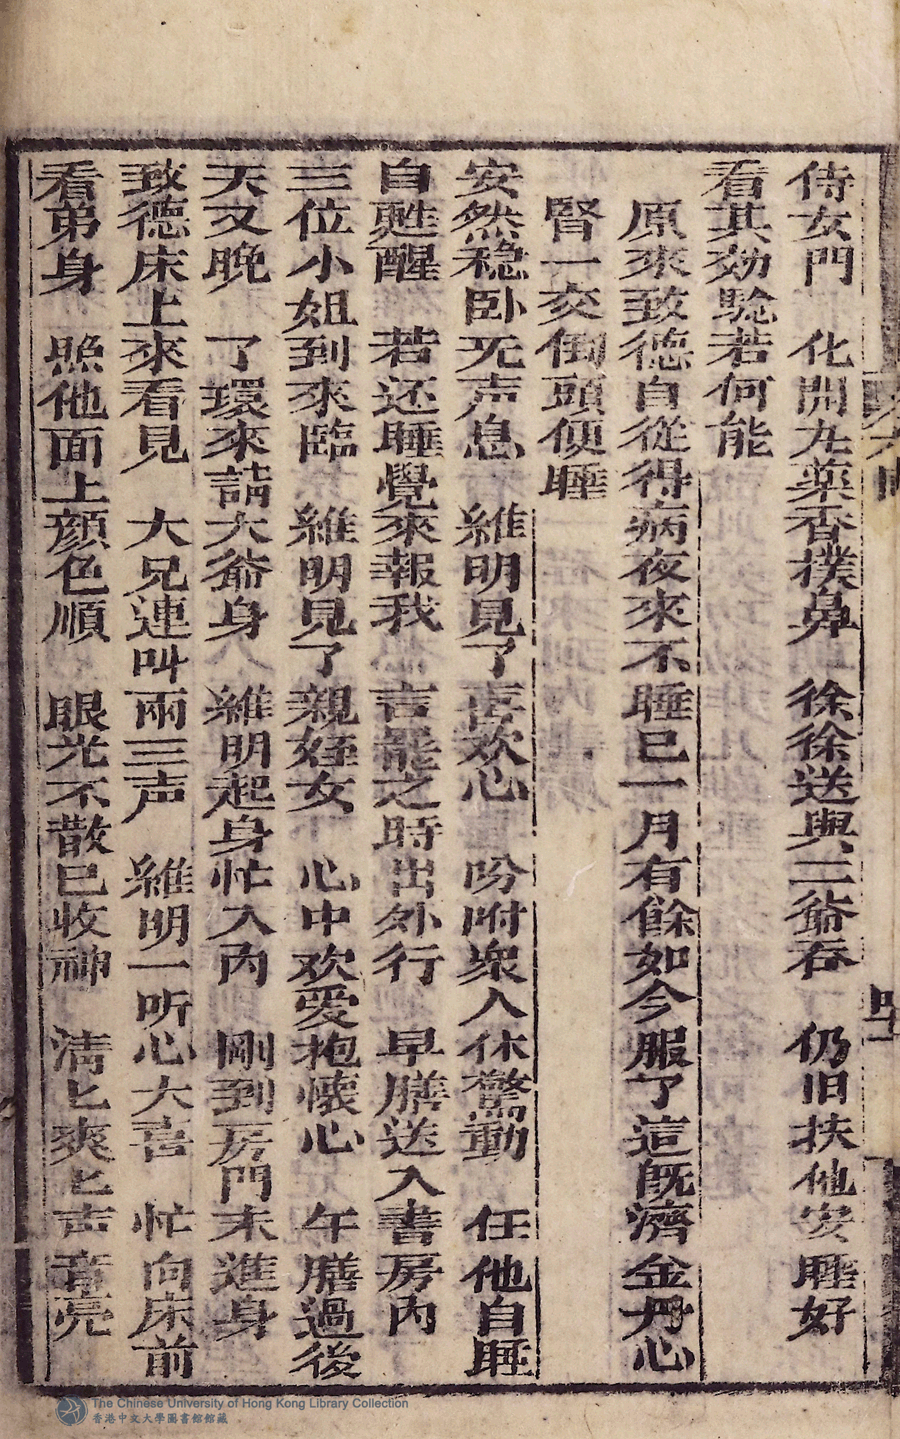 侍女門　化開丸藥香撲鼻　徐徐送與三爺吞　仍旧扶他安睡好
看其効騐若何能
原來致德自從得病夜來不睡已一月有餘如今服了這既濟金丹心
腎一交倒頭便睡
安然穏卧无声息　維明見了喜欢心　吩咐衆人休驚動　任他自睡
自甦醒　若还睡覺來報我　言罷之時出外行　早膳送入書房内
三位小姐到來臨　維明見了親姪女　心中欢爱抱懐心　午膳過後
天又晚　了環來請大爺身　維明起身忙入内　剛到房門未進身
致德床上來看見　大兄連叫兩三声　維明一听心大喜　忙向床前
看弟身　照他面上顔色順　眼光不散已收神　清匕爽匕声音亮
The Chinese University of Hong Kong Library Collection
香港中文大學圖書館館藏